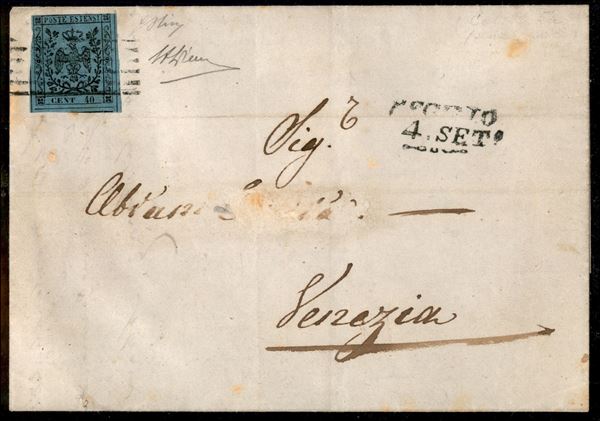 POSTE ESTENSI
CENT. 40
Sig.r
4. SET.
Abram
Venezia